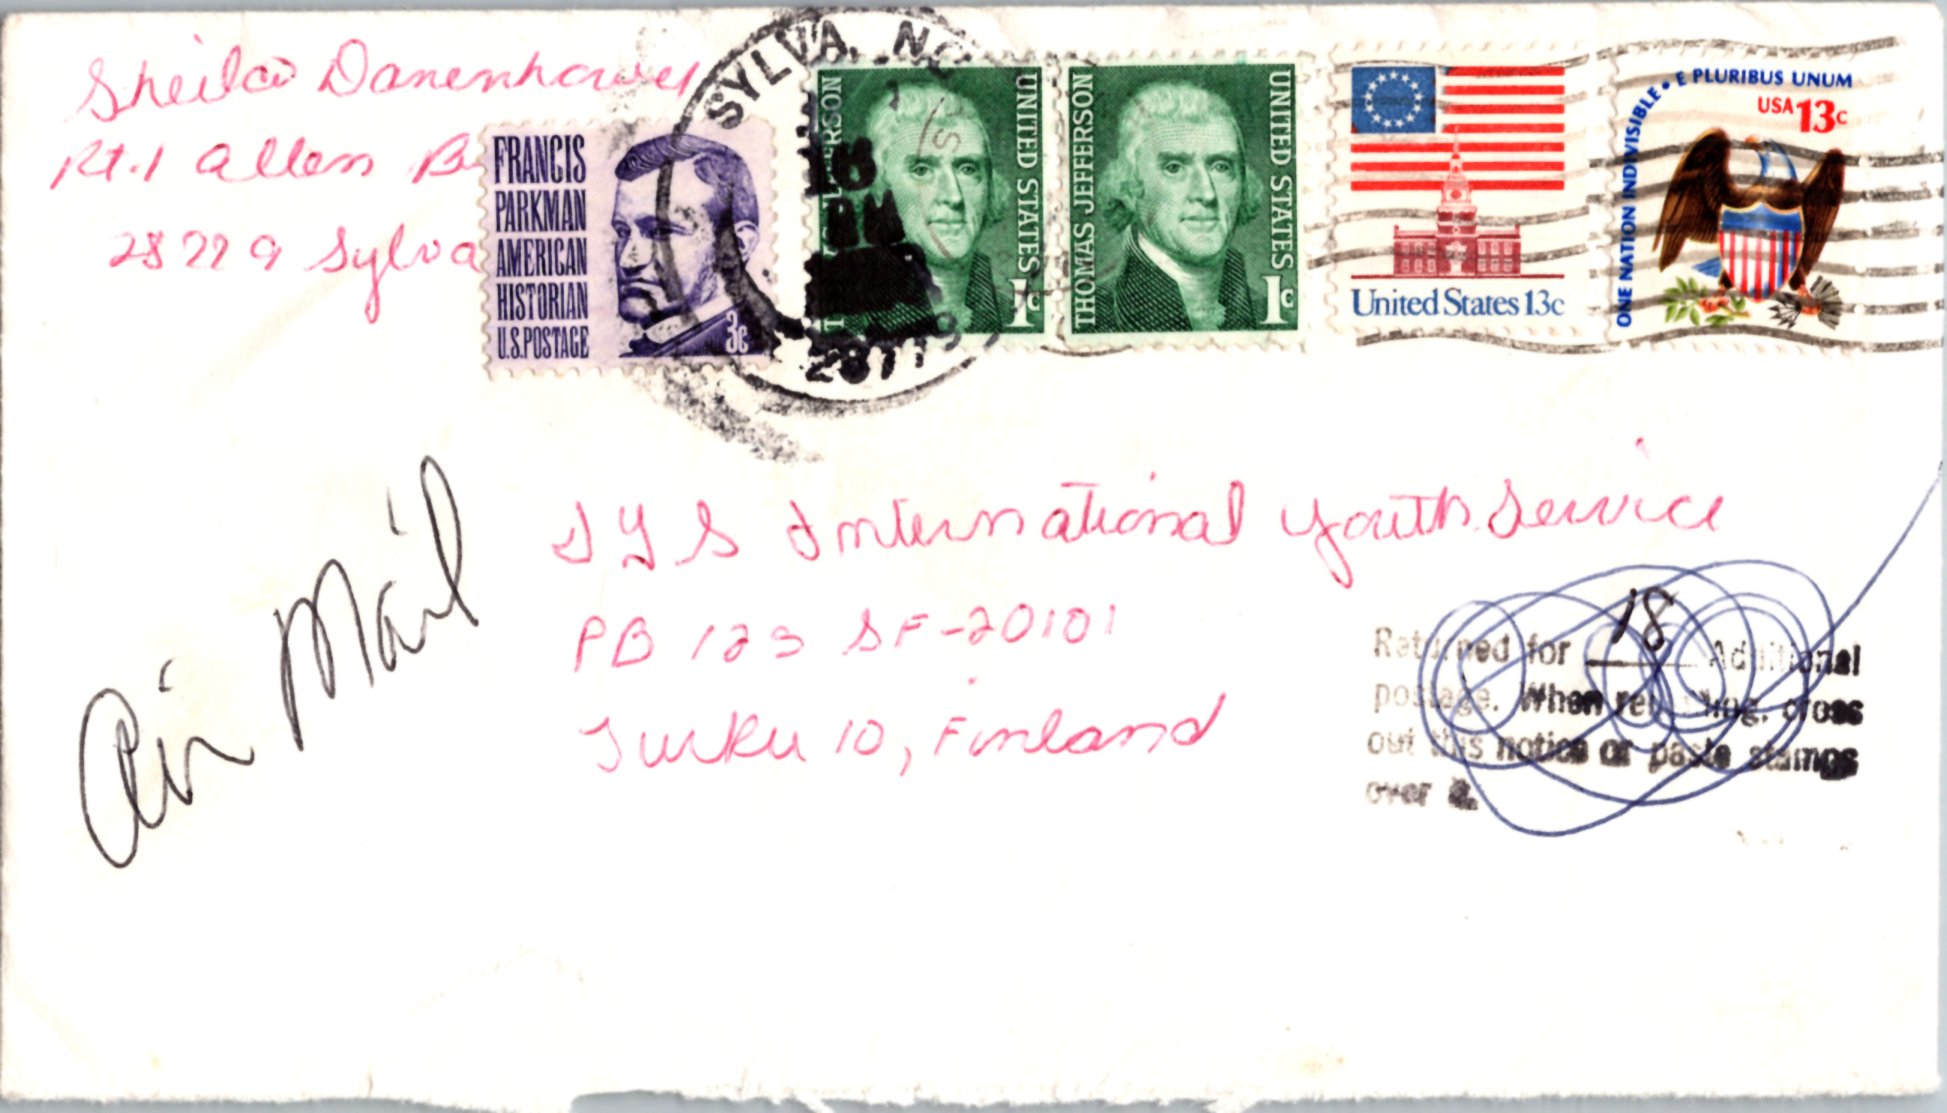 Sheila Danenhower
Rt. 1 Allen B
28779 Sylva
FRANCIS
PARKMAN
AMERICAN
HISTORIAN
U.S. POSTAGE
3c
SYLVA, NC
AM
2877
UNITED STATES
1c
THOMAS JEFFERSON
UNITED STATES
1c
United States 13c
ONE NATION INDIVISIBLE • E PLURIBUS UNUM
USA 13c
Air Mail
IYS International Youth Service
PB 125 SF-20101
Turku 10, Finland
Returned for 18 Additional
postage. When remailing, cross
out this notice or paste stamps
over it.